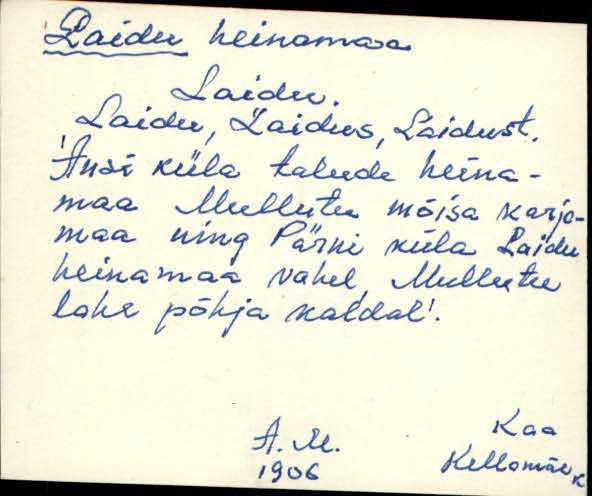 Laidu heinamaa
Laidu.
Laidu, Laidus, Laidust.
'Ansi küla talude heina-
maa Mullutu mõisa karja-
maa ning Pärni küla Laidu
heinamaa vahel, Mullutu
lahe põhja kaldal'.
A. M.
1906
Kaa
Kellamäe k